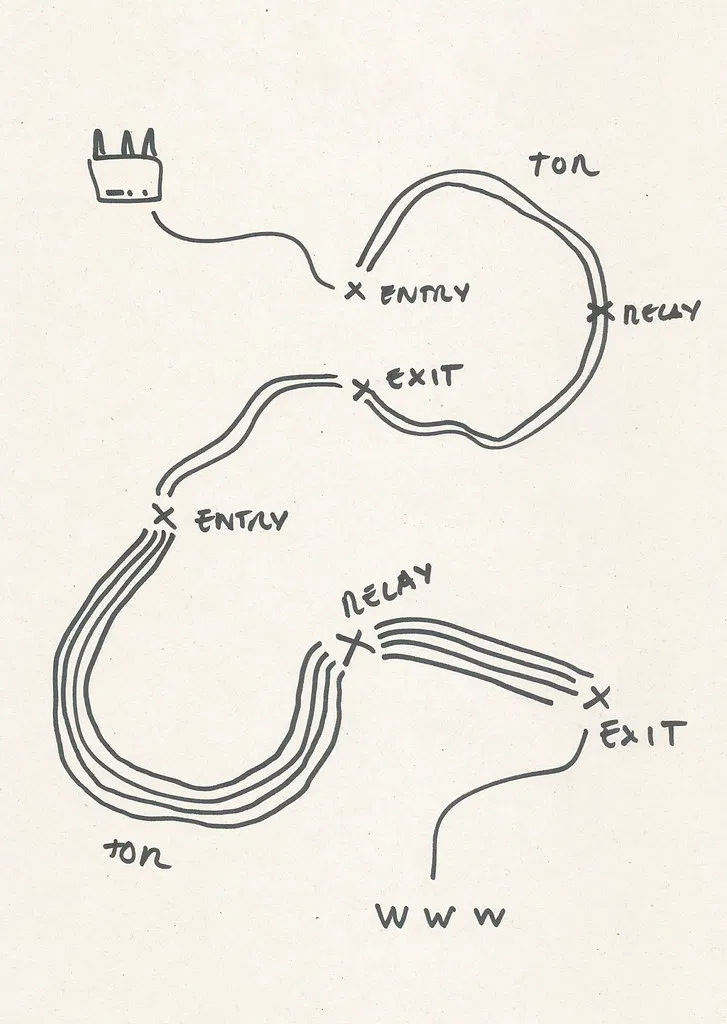 TOR
ENTRY
RELAY
EXIT
ENTRY
RELAY
EXIT
TOR
WWW